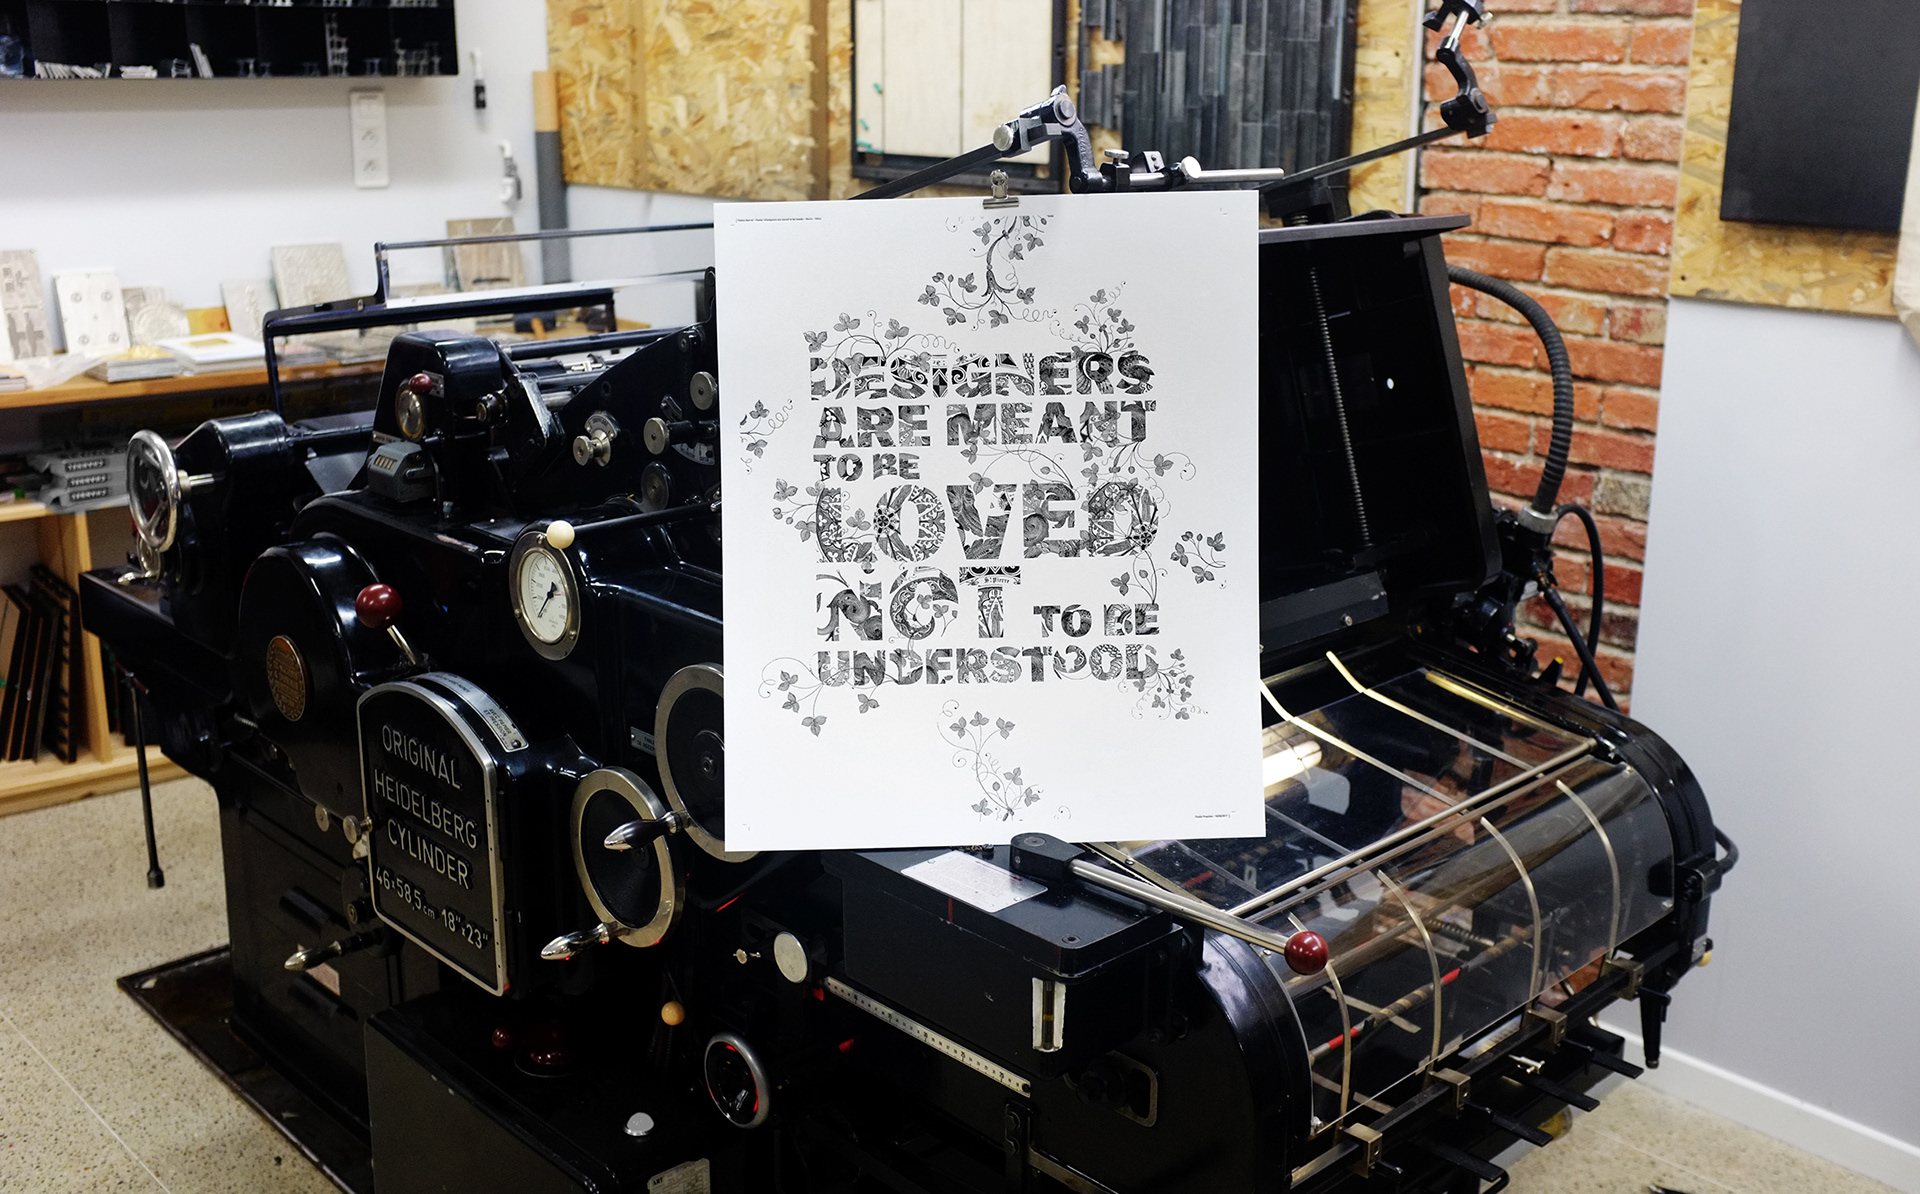 DESIGNERS
ARE MEANT
TO BE
LOVED
NOT TO BE
UNDERSTOOD
St Pierre
ORIGINAL
HEIDELBERG
CYLINDER
46x58,5cm 18"x23"